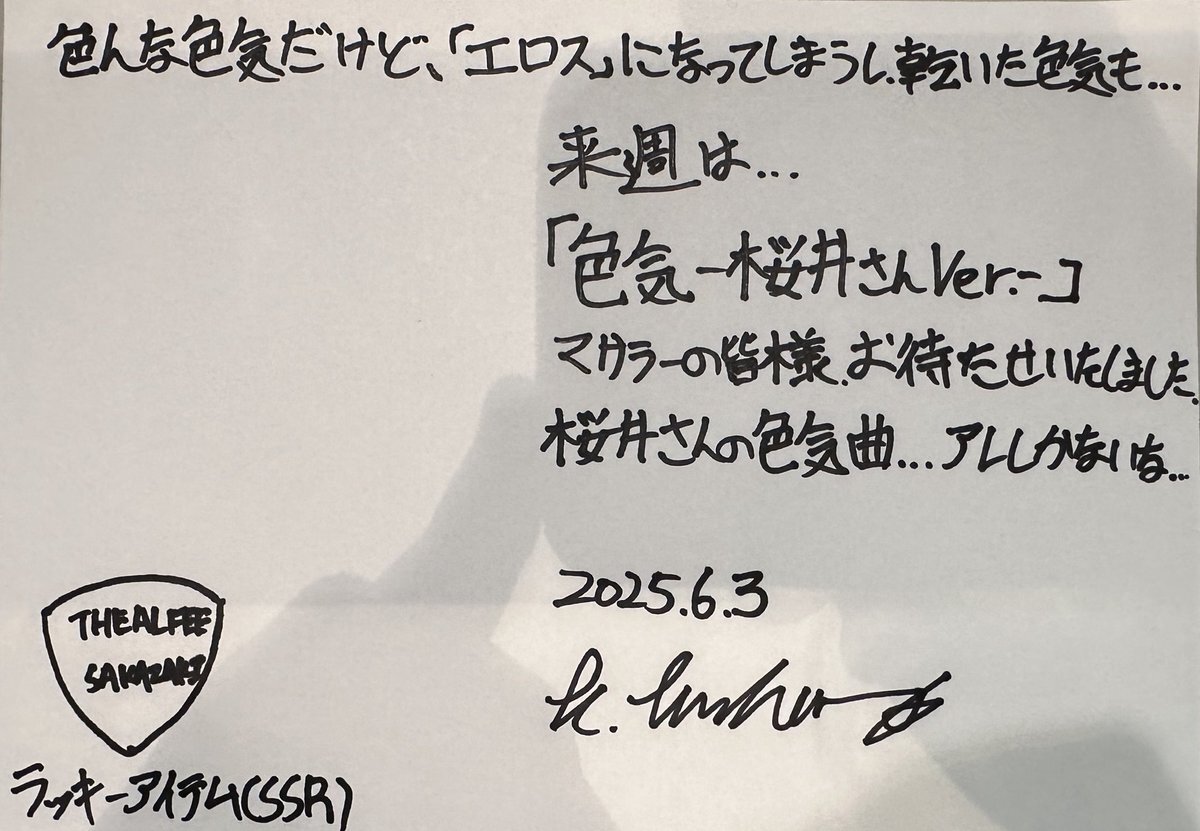 色んな色気だけど、「エロス」になってしまうし、乾いた色気も...
来週は...
「色気-桜井さんVer.-」
マサラーの皆様、お待たせいたしました。
桜井さんの色気曲...アレしかないな...
2025.6.3
THE ALFEE
SAKAZAKI
ラッキーアイテム(SSR)